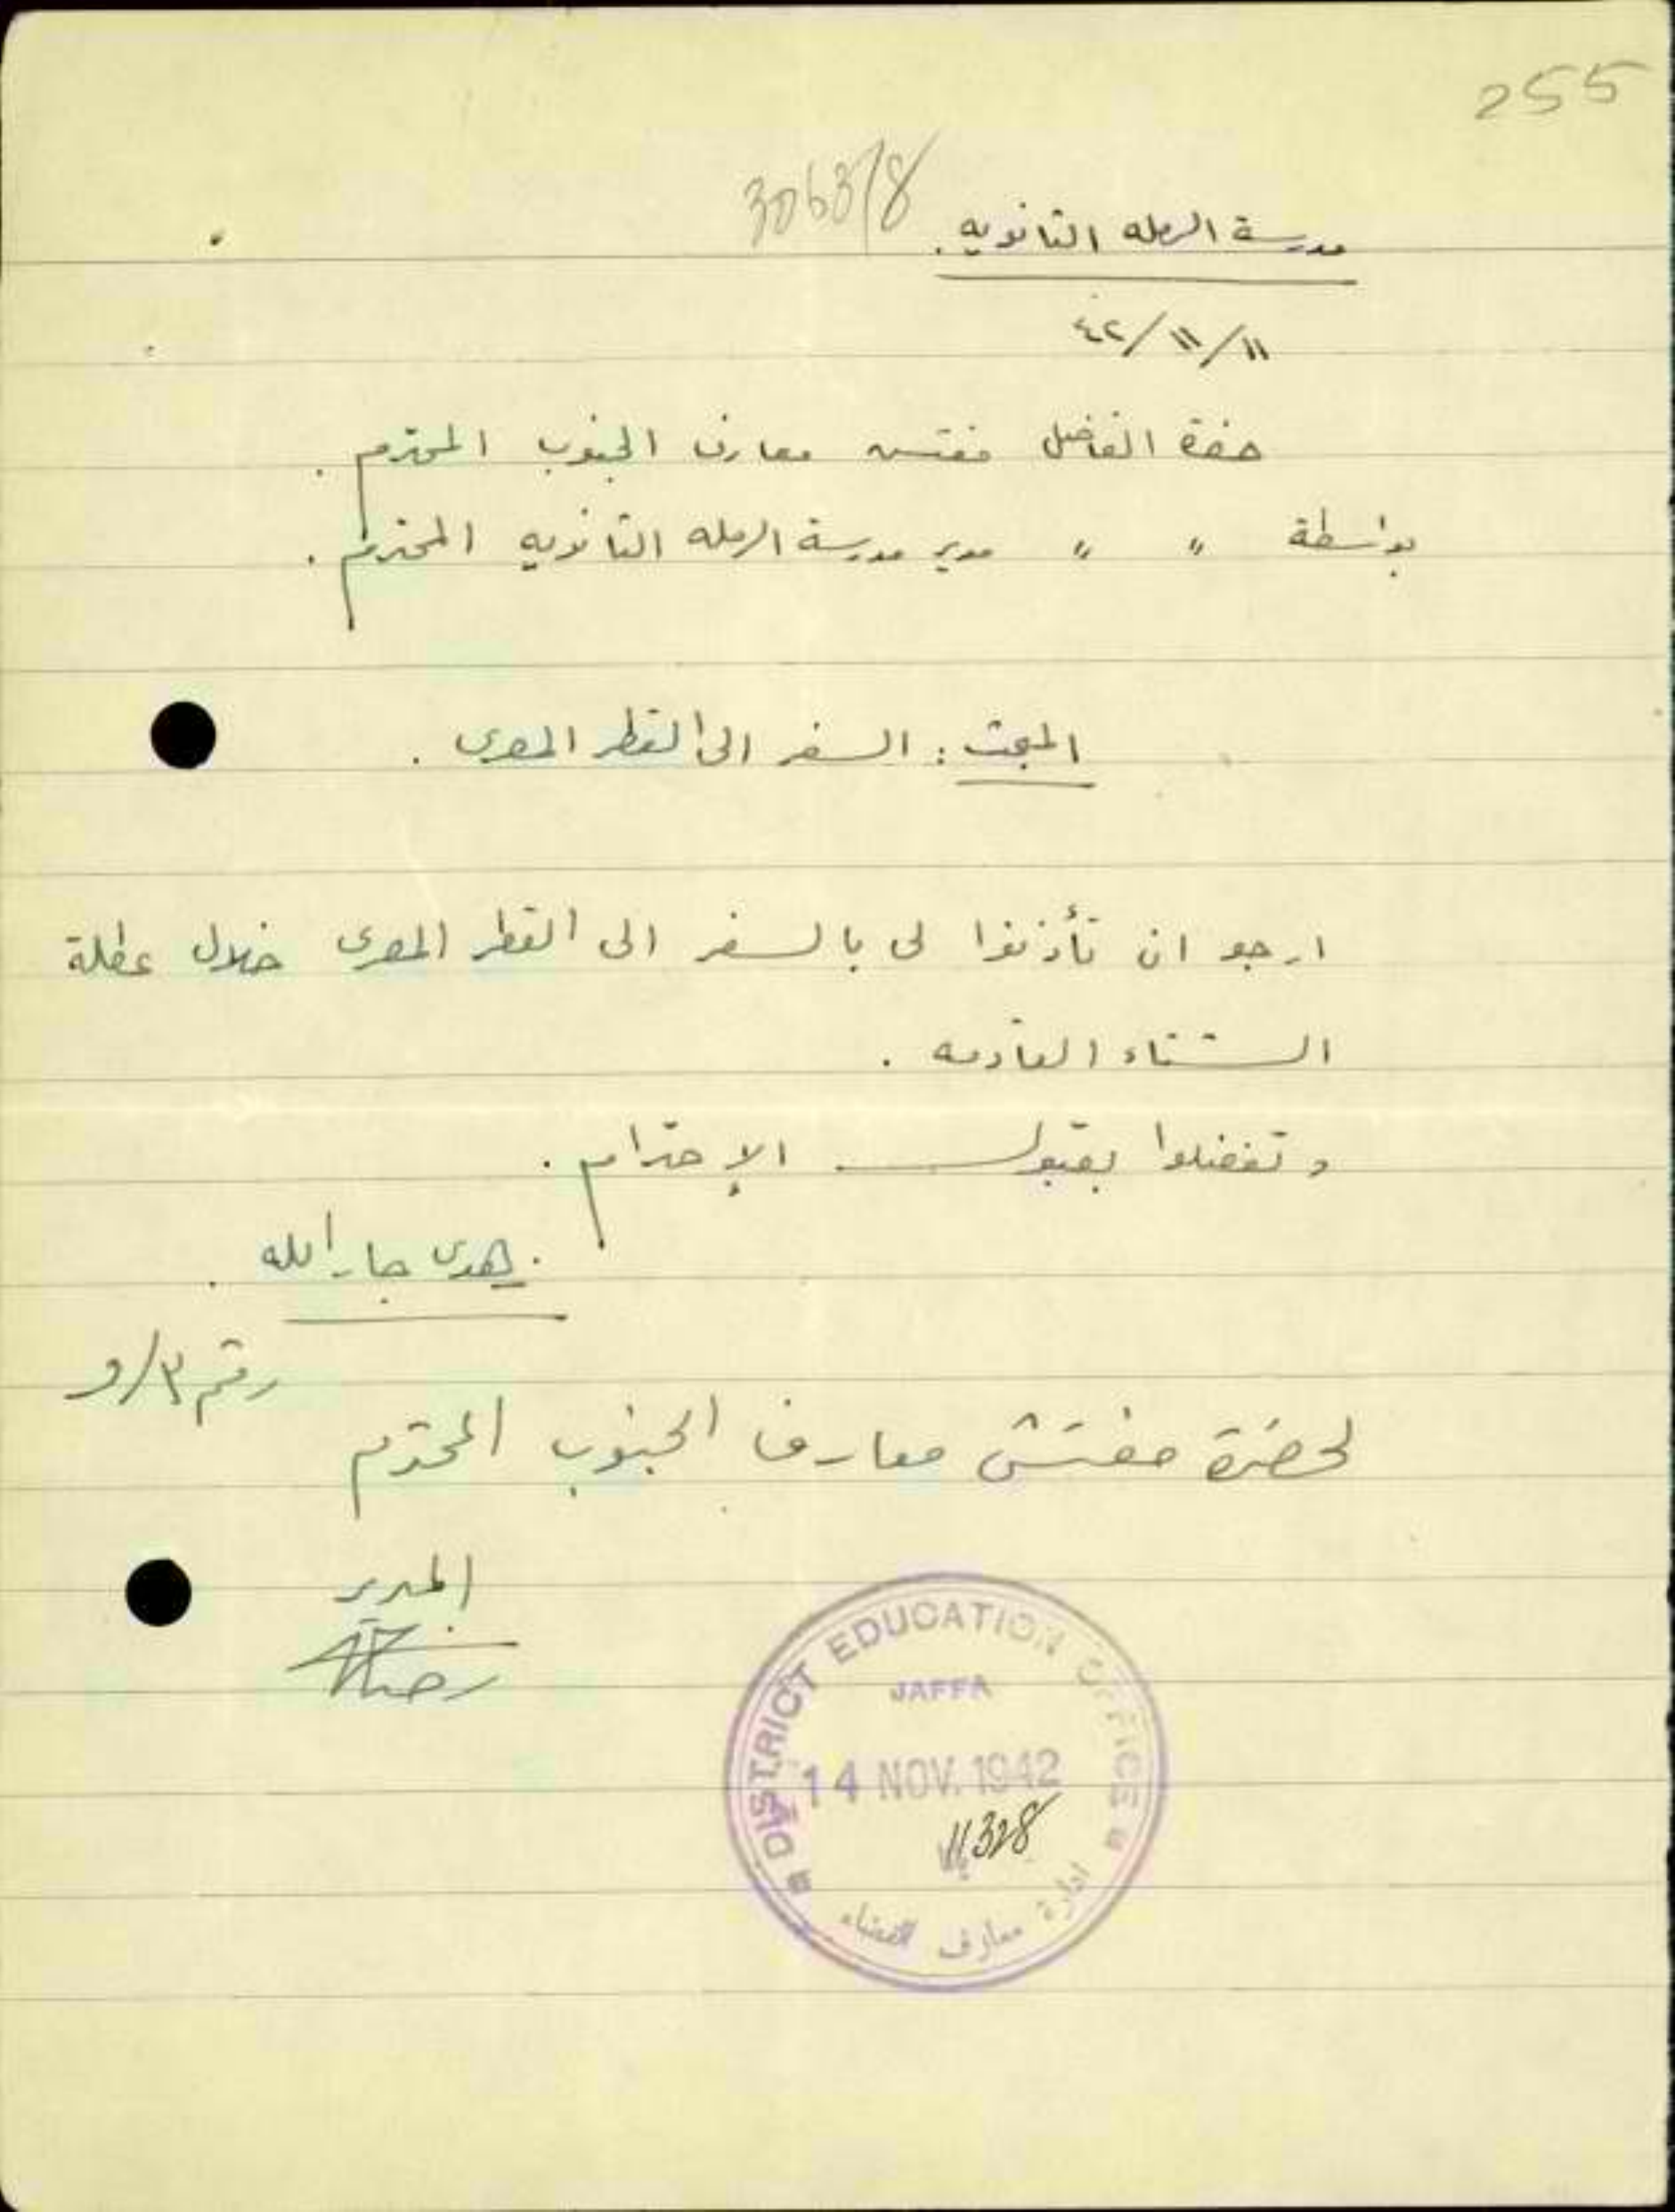 255
3063/8
مدرسة الرمله الثانويه.
١١/١١/٤٢
حضرة الفاضل مفتش معارف الجنوب المحترم.
بواسطة " " مدير مدرسة الرمله الثانويه المحترم.
المبحث: السفر الى القطر المصرى.
ارجو ان تأذنوا لى بالسفر الى القطر المصرى خلال عطلة
الشتاء القادمه.
وتفضلوا بقبول الإحترام.
جار الله.
رقم ٣/و
لحضرة مفتش معارف الجنوب المحترم
المدير
DISTRICT EDUCATION OFFICE
JAFFA
14 NOV. 1942
11328
ادارة معارف القضاء